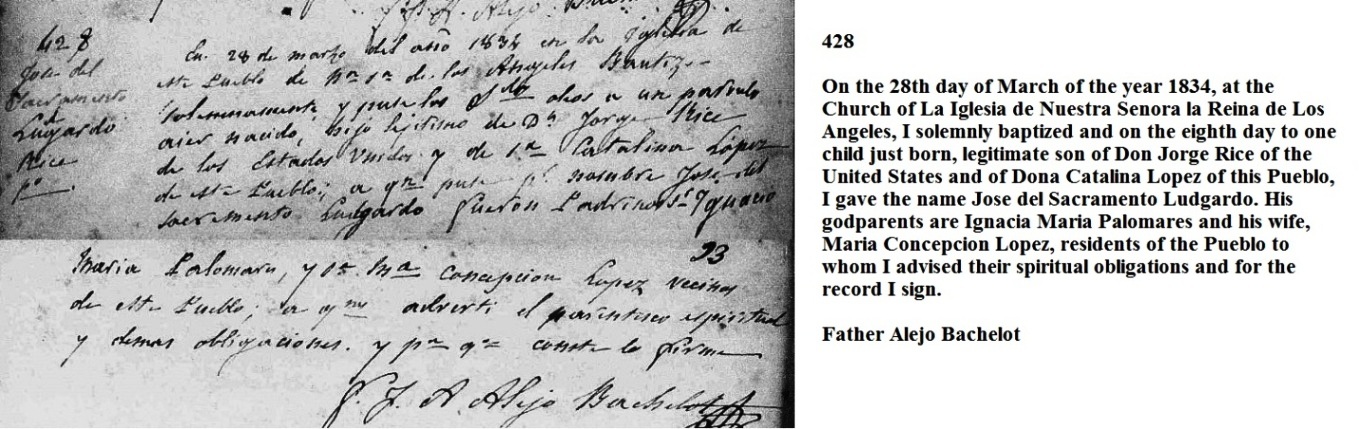 428
Jose del
Sacramento
Ludgardo
Rice
En 28 de marzo del año 1834 en la Iglesia de
este Pueblo de Na. Sa. de los Angeles Bautize
solemnamente y puse los Stos oleos a un parvulo
aier nacido, hijo lejitimo de Dn Jorge Rice
de los Estados Unidos y de Da Catalina López
de este Pueblo; a qn puse pr nombre José del
Sacramento Ludgardo fueron Padrinos Ignacio
93
Maria Palomares, y Da Ma Concepcion Lopez vecinos
de este Pueblo; a qnes adverti el parentesco espiritual
y demas obligaciones. y pa qe conste lo firme
Alejo Bachelot
428
On the 28th day of March of the year 1834, at the
Church of La Iglesia de Nuestra Senora la Reina de Los
Angeles, I solemnly baptized and on the eighth day to one
child just born, legitimate son of Don Jorge Rice of the
United States and of Dona Catalina Lopez of this Pueblo,
I gave the name Jose del Sacramento Ludgardo. His
godparents are Ignacia Maria Palomares and his wife,
Maria Concepcion Lopez, residents of the Pueblo to
whom I advised their spiritual obligations and for the
record I sign.
Father Alejo Bachelot